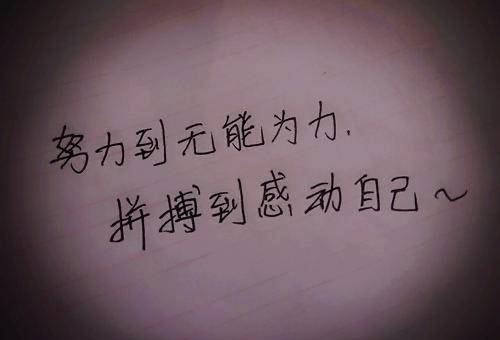 努力到无能为力.
拼搏到感动自己~